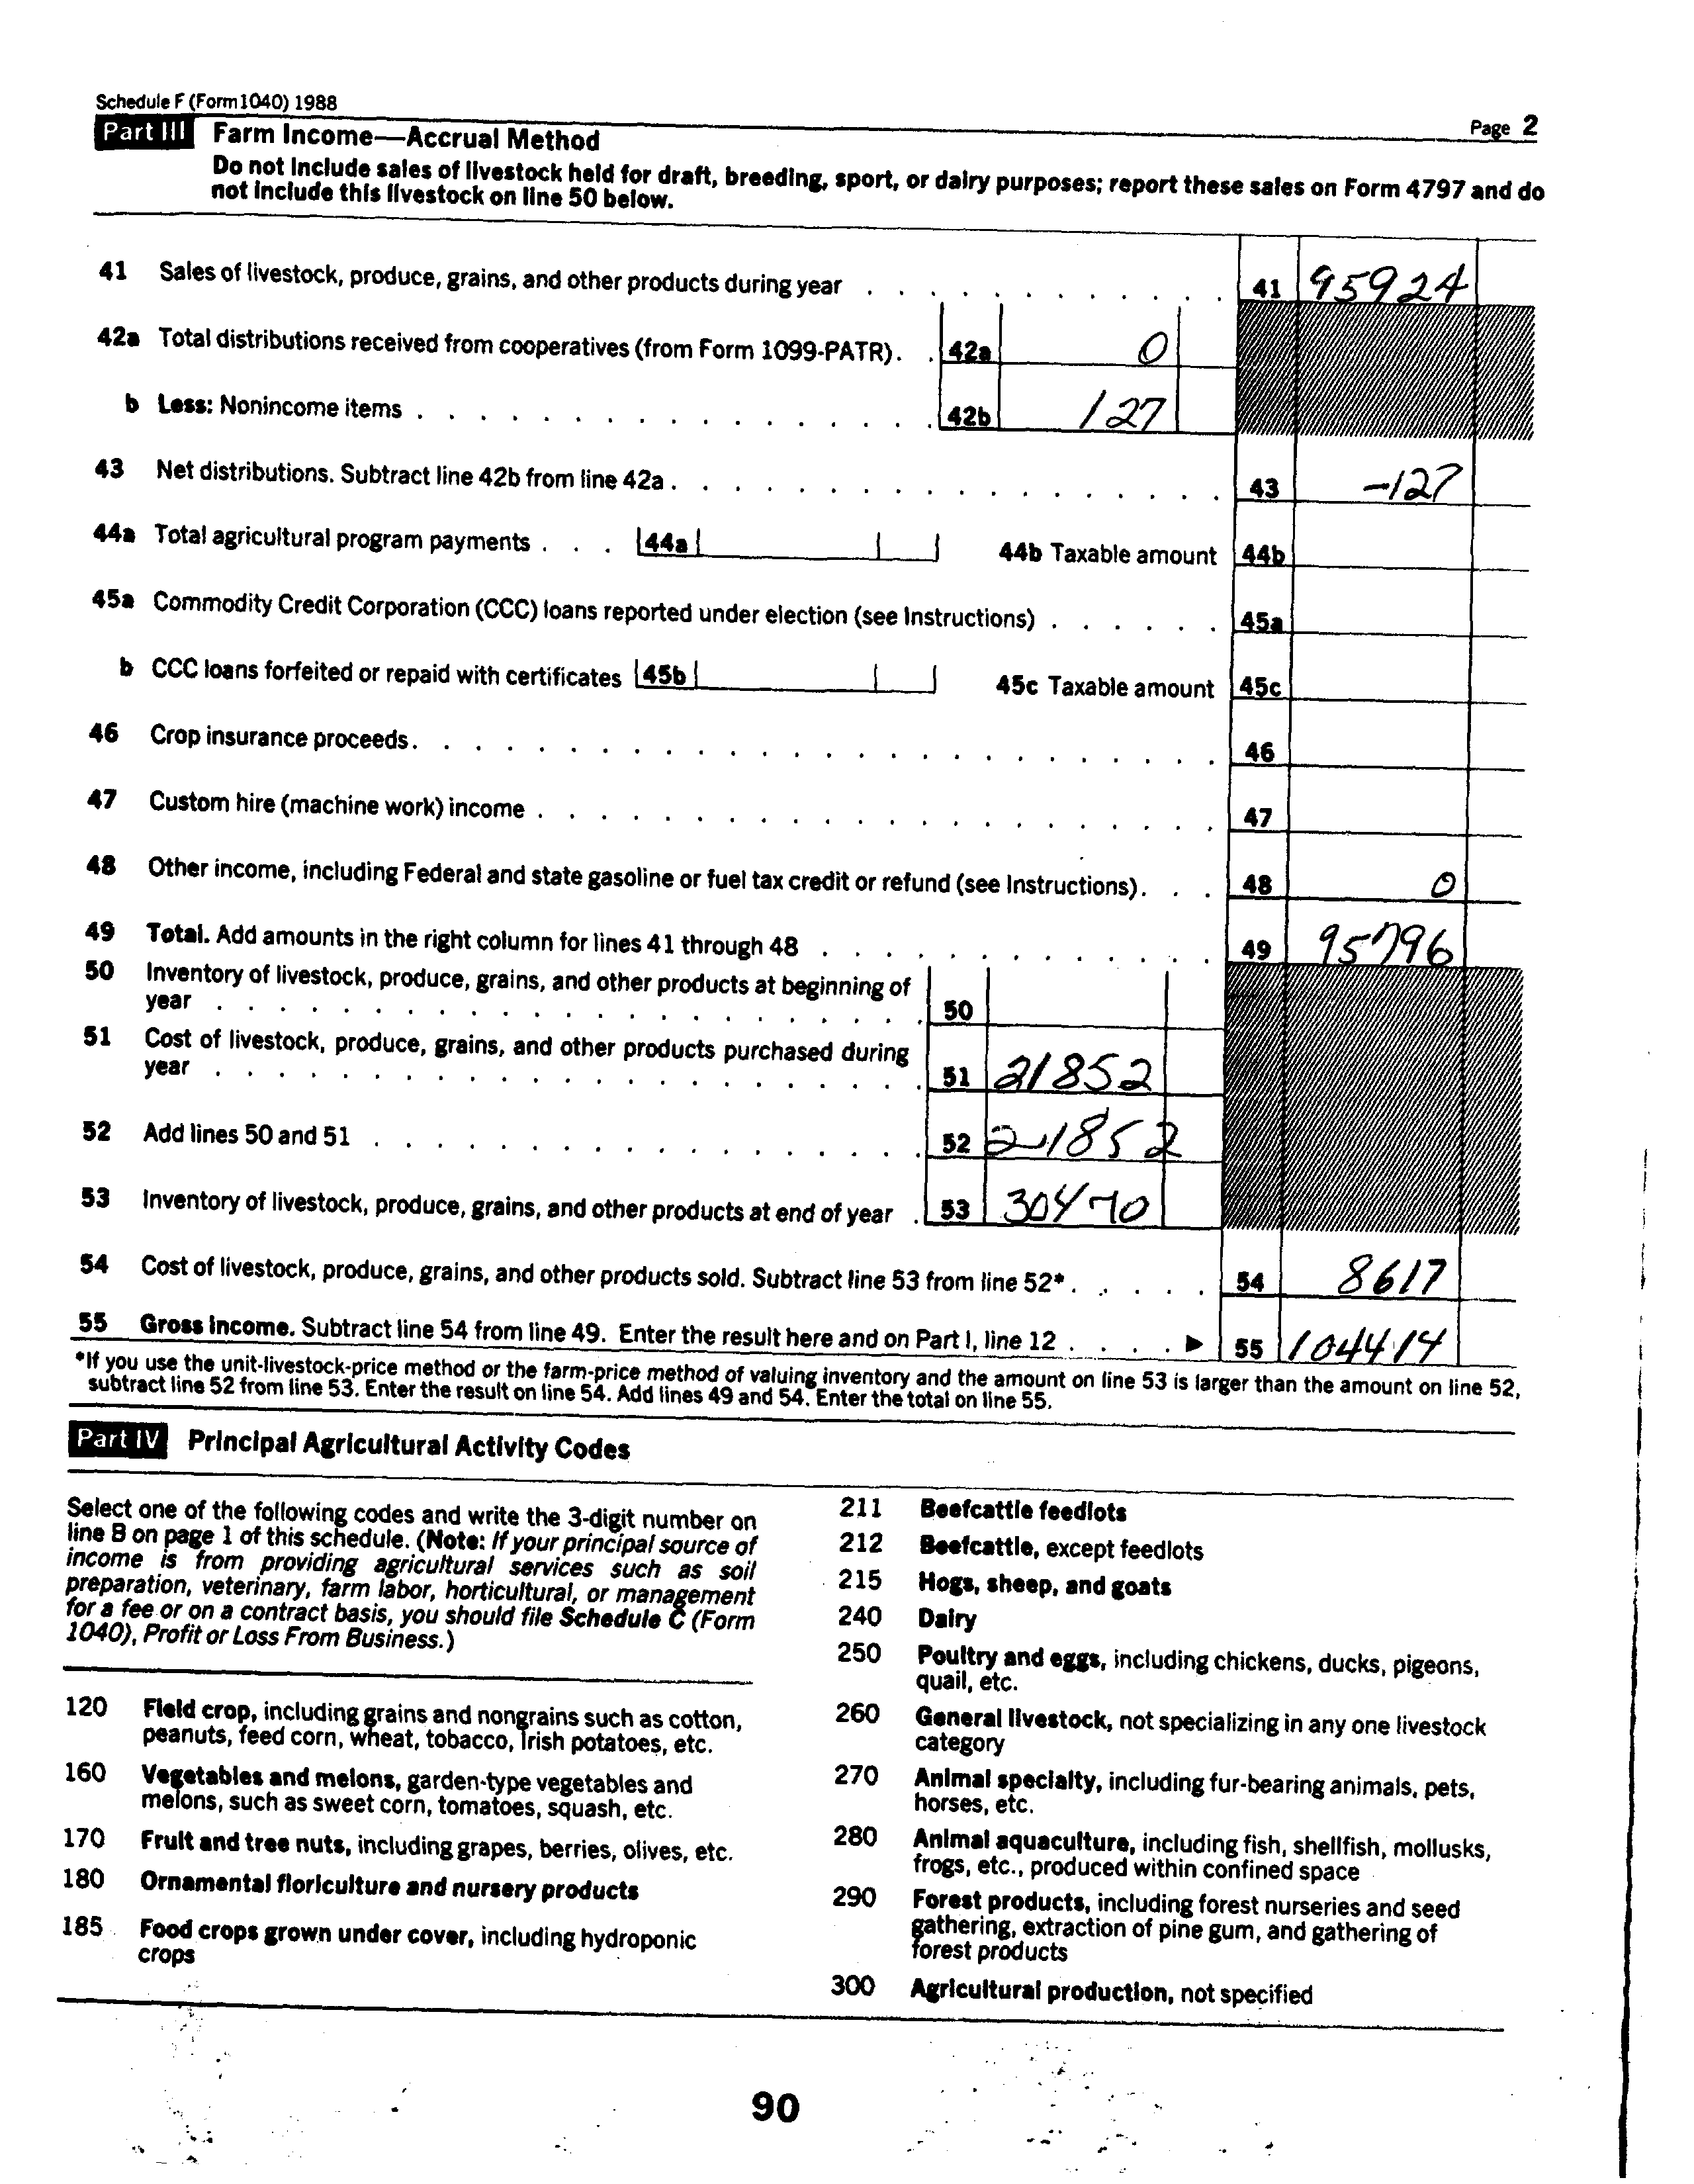 Schedule F (Form 1040) 1988
Page 2
Part III Farm Income—Accrual Method
Do not include sales of livestock held for draft, breeding, sport, or dairy purposes; report these sales on Form 4797 and do
not include this livestock on line 50 below.
41 Sales of livestock, produce, grains, and other products during year 41 95924
42a Total distributions received from cooperatives (from Form 1099-PATR). 42a 0
b Less: Nonincome items 42b 127
43 Net distributions. Subtract line 42b from line 42a 43 -127
44a Total agricultural program payments 44a 44b Taxable amount 44b
45a Commodity Credit Corporation (CCC) loans reported under election (see Instructions) 45a
b CCC loans forfeited or repaid with certificates 45b 45c Taxable amount 45c
46 Crop insurance proceeds 46
47 Custom hire (machine work) income 47
48 Other income, including Federal and state gasoline or fuel tax credit or refund (see Instructions) 48 0
49 Total. Add amounts in the right column for lines 41 through 48 49 95796
50 Inventory of livestock, produce, grains, and other products at beginning of
year 50
51 Cost of livestock, produce, grains, and other products purchased during
year 51 21852
52 Add lines 50 and 51 52 21852
53 Inventory of livestock, produce, grains, and other products at end of year 53 30470
54 Cost of livestock, produce, grains, and other products sold. Subtract line 53 from line 52* 54 8617
55 Gross Income. Subtract line 54 from line 49. Enter the result here and on Part I, line 12 ▶ 55 104414
*If you use the unit-livestock-price method or the farm-price method of valuing inventory and the amount on line 53 is larger than the amount on line 52,
subtract line 52 from line 53. Enter the result on line 54. Add lines 49 and 54. Enter the total on line 55.
Part IV Principal Agricultural Activity Codes
Select one of the following codes and write the 3-digit number on
line B on page 1 of this schedule. (Note: If your principal source of
income is from providing agricultural services such as soil
preparation, veterinary, farm labor, horticultural, or management
for a fee or on a contract basis, you should file Schedule C (Form
1040), Profit or Loss From Business.)
120 Field crop, including grains and nongrains such as cotton,
peanuts, feed corn, wheat, tobacco, Irish potatoes, etc.
160 Vegetables and melons, garden-type vegetables and
melons, such as sweet corn, tomatoes, squash, etc.
170 Fruit and tree nuts, including grapes, berries, olives, etc.
180 Ornamental floriculture and nursery products
185 Food crops grown under cover, including hydroponic
crops
211 Beefcattle feedlots
212 Beefcattle, except feedlots
215 Hogs, sheep, and goats
240 Dairy
250 Poultry and eggs, including chickens, ducks, pigeons,
quail, etc.
260 General livestock, not specializing in any one livestock
category
270 Animal specialty, including fur-bearing animals, pets,
horses, etc.
280 Animal aquaculture, including fish, shellfish, mollusks,
frogs, etc., produced within confined space
290 Forest products, including forest nurseries and seed
gathering, extraction of pine gum, and gathering of
forest products
300 Agricultural production, not specified
90